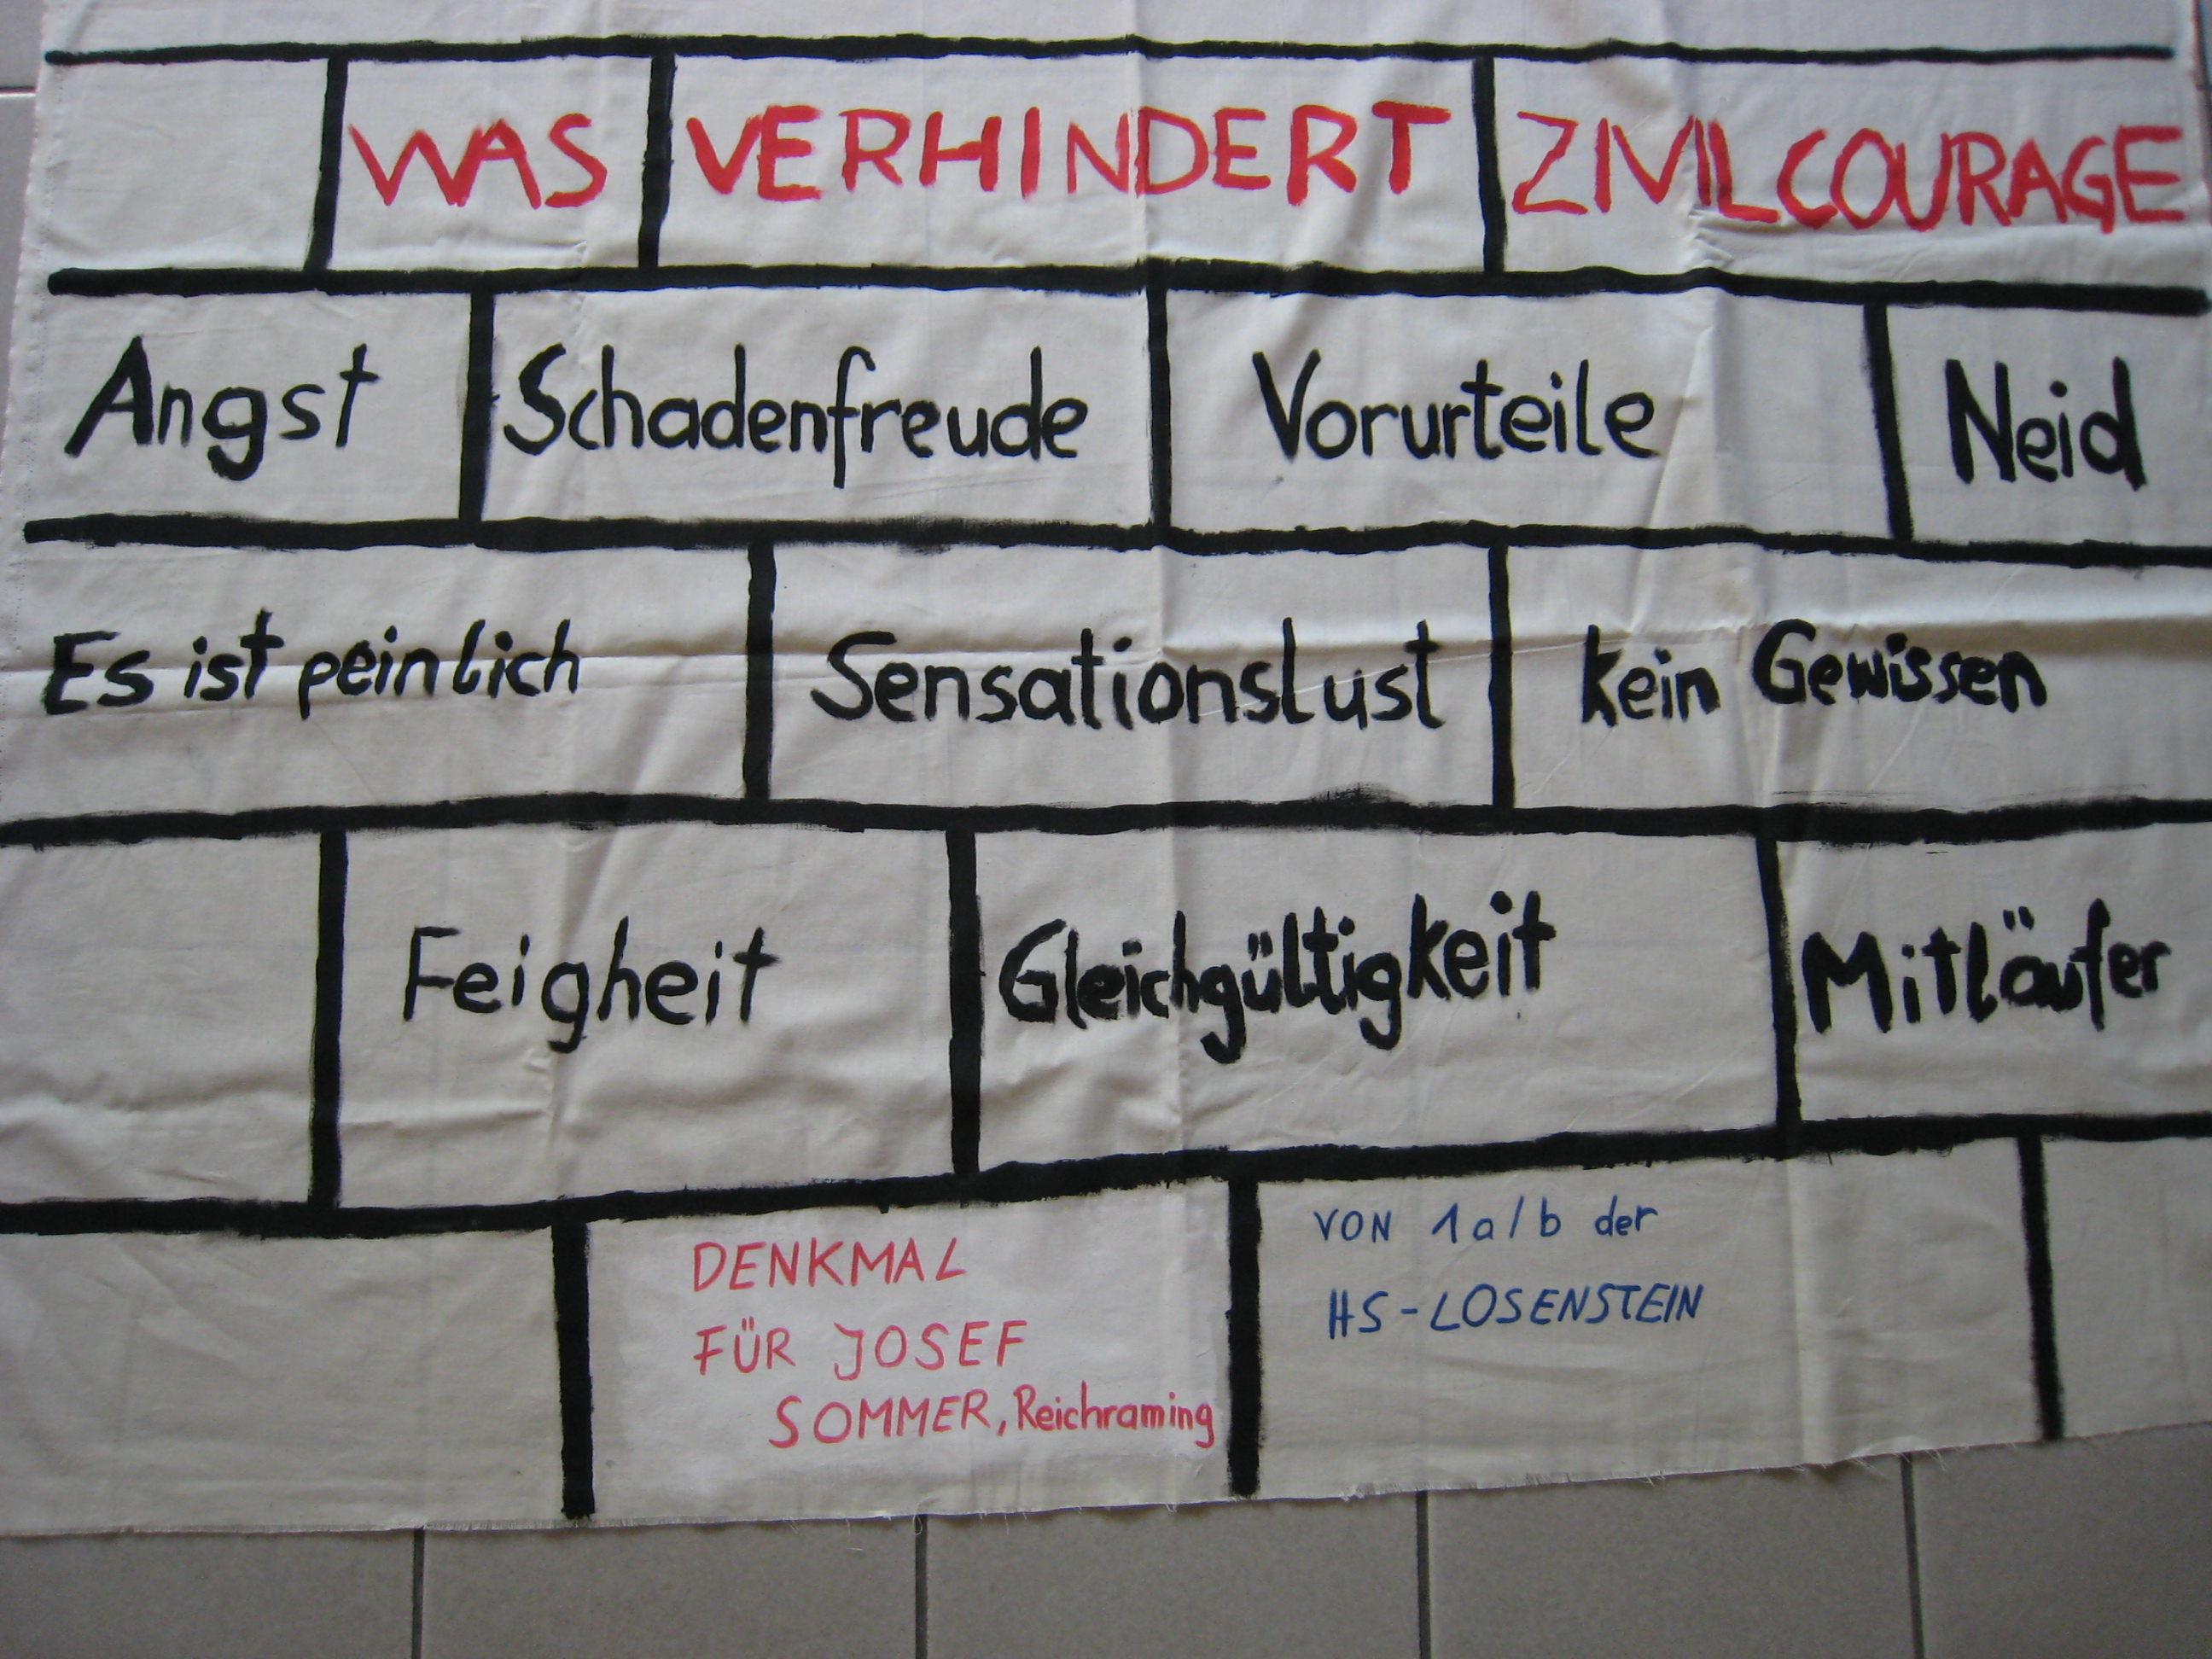 WAS VERHINDERT ZIVILCOURAGE
Angst Schadenfreude Vorurteile Neid
Es ist peinlich Sensationslust kein Gewissen
Feigheit Gleichgültigkeit Mitläufer
DENKMAL
FÜR JOSEF
SOMMER, Reichraming
VON 1a/b der
HS-LOSENSTEIN